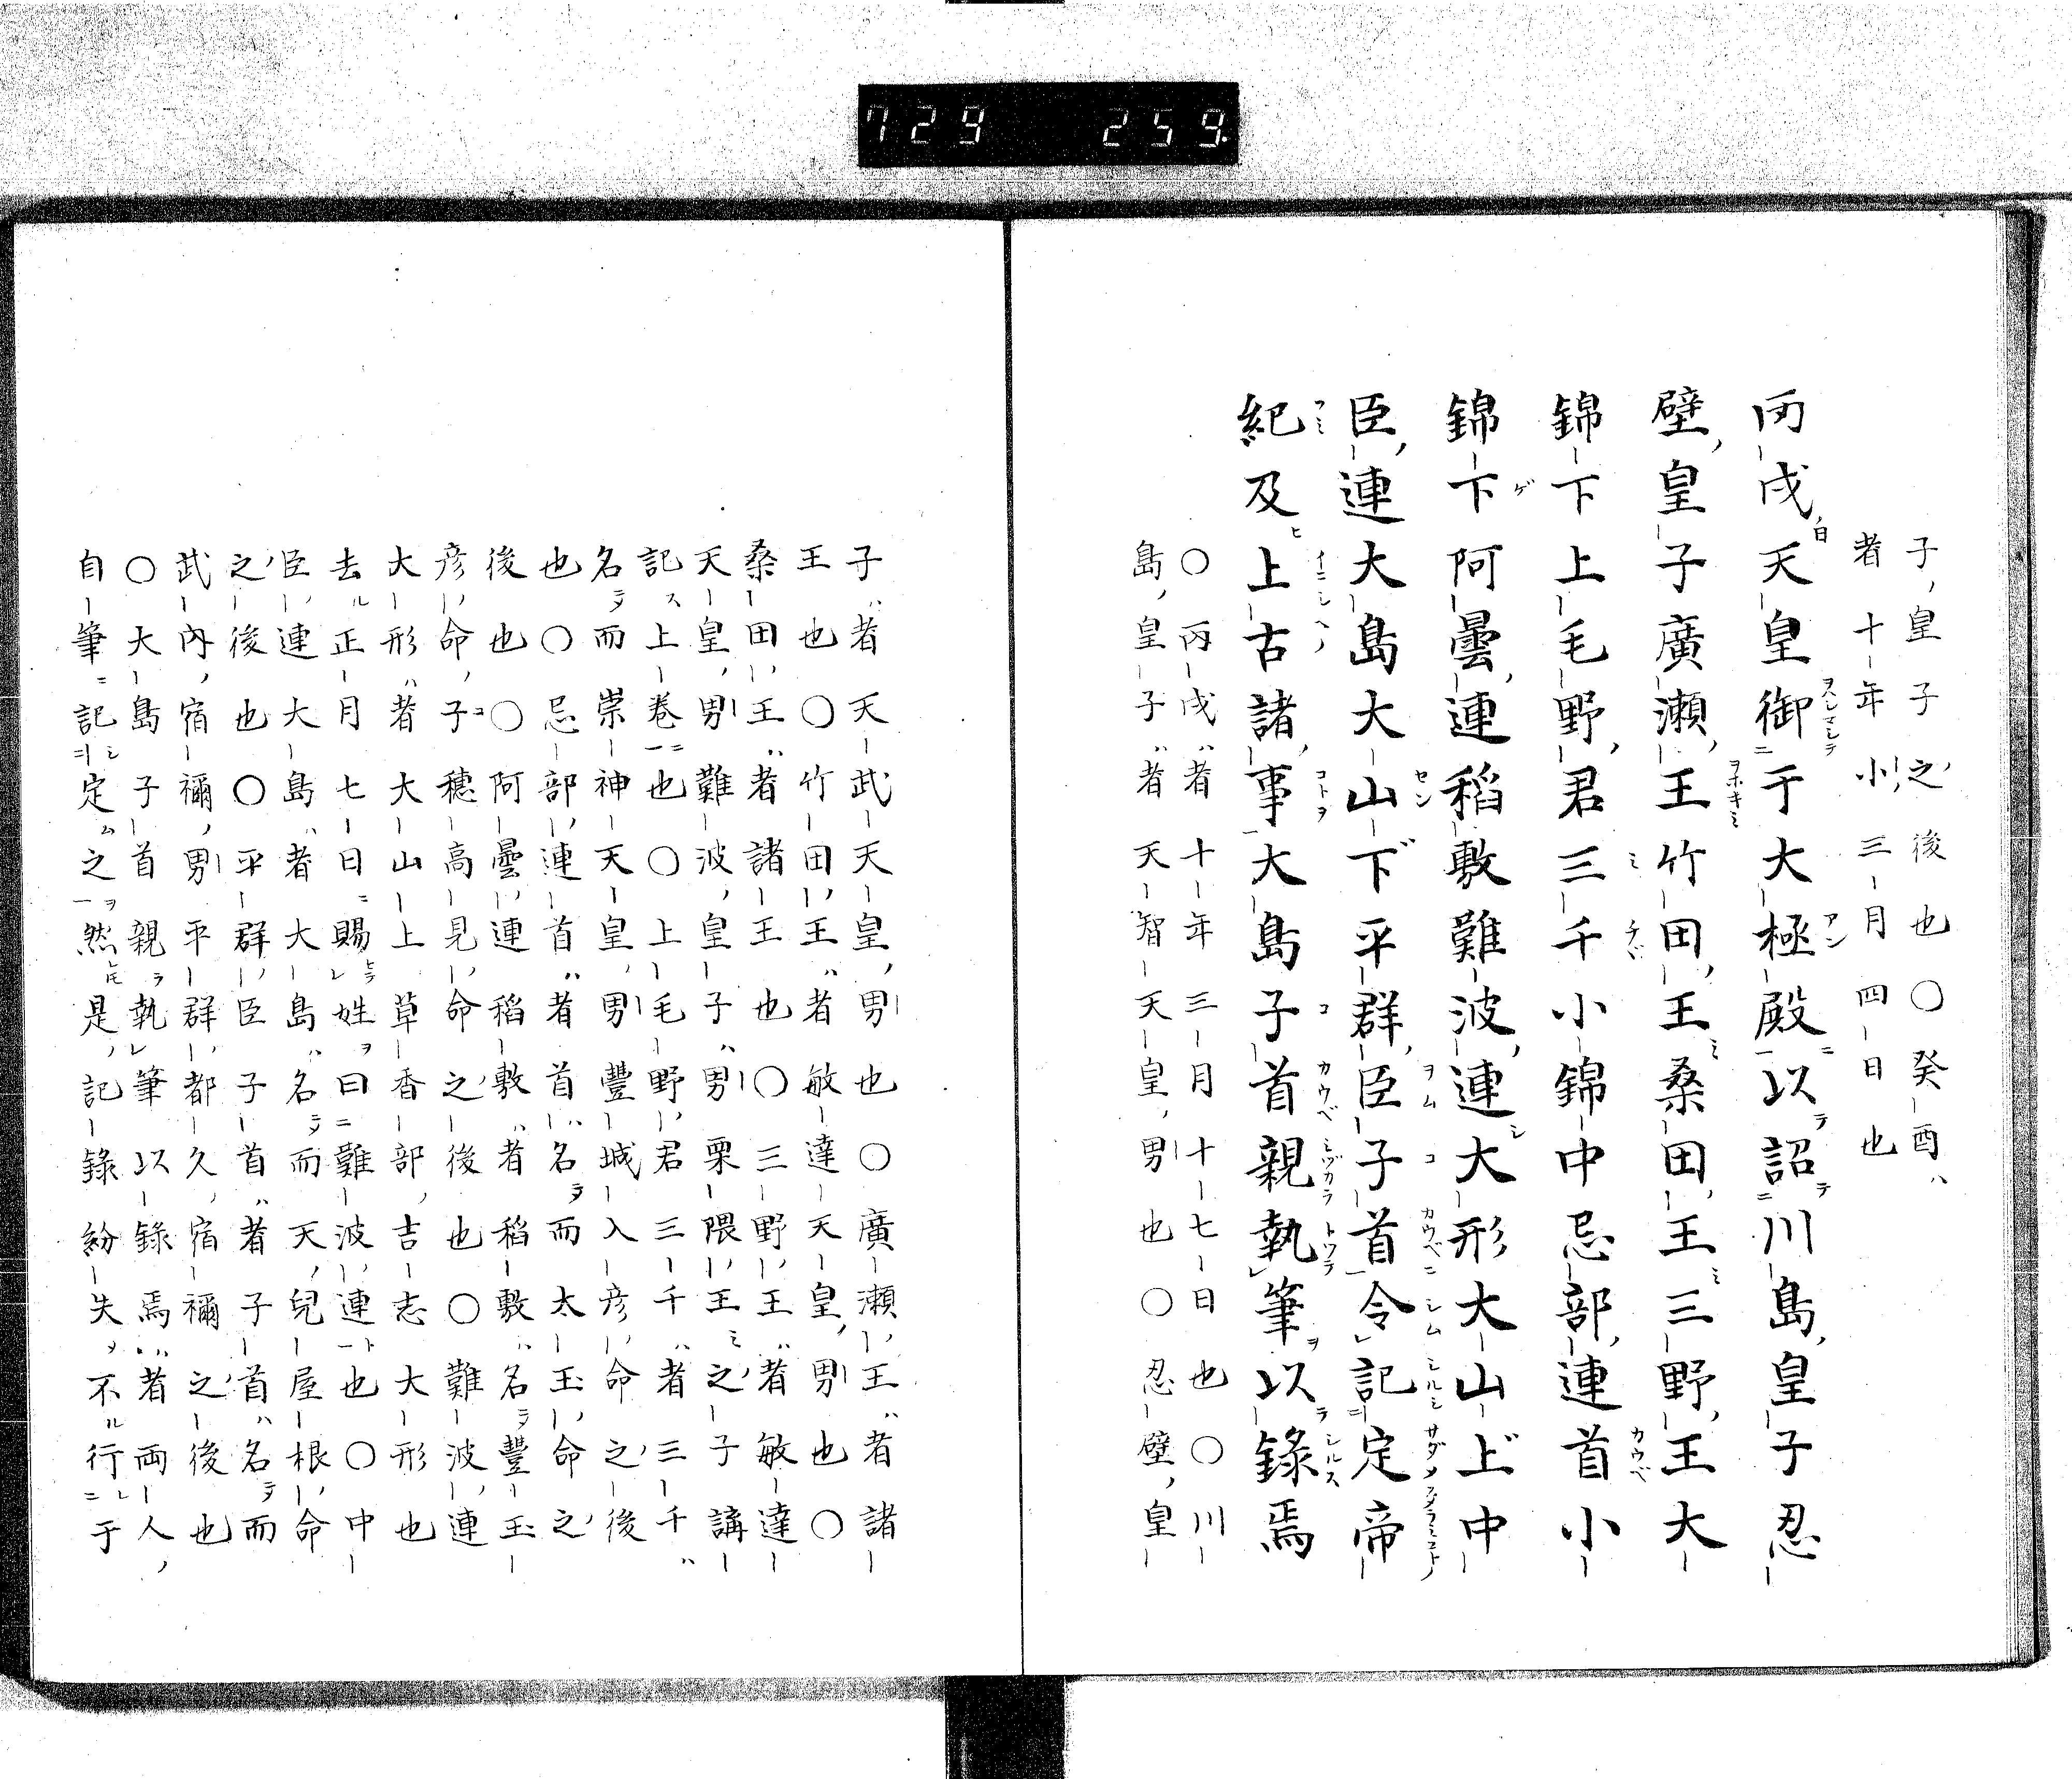 729 259
子皇子之後也〇癸酉
者十年小三月四日也
丙戌天皇御于大極殿以詔川島皇子忍
壁皇子廣瀬王竹田王桑田王三野王大
錦下上毛野君三千小錦中忌部連首小
錦下阿曇連稻敷難波連大形大山上中
臣連大島大山下平群臣子首令記定帝
紀及上古諸事大島子首親執筆以錄焉
〇丙戌者十年三月十七日也〇川
島皇子者天智天皇男也〇忍壁皇
子者天武天皇男也〇廣瀬王者諸
王也〇竹田王者敏達天皇男也〇
桑田王者諸王也〇三野王者敏達
天皇男難波皇子男栗隈王之子講
記上巻也〇上毛野君三千者三千
名而崇神天皇男豐城入彦命之後
也〇忌部連首者首名而太玉命之
後也〇阿曇連稻敷者稻敷名豐玉
彦命子穗高見命之後也〇難波連
大形者大山上草香部吉志大形也
去正月七日賜姓曰難波連也〇中
臣連大島者大島名而天兒屋根命
之後也〇平群臣子首者子首名而
武內宿禰男平群都久宿禰之後也
〇大島子首親執筆以錄焉者両人
自筆記定之然是記錄紛失不行于